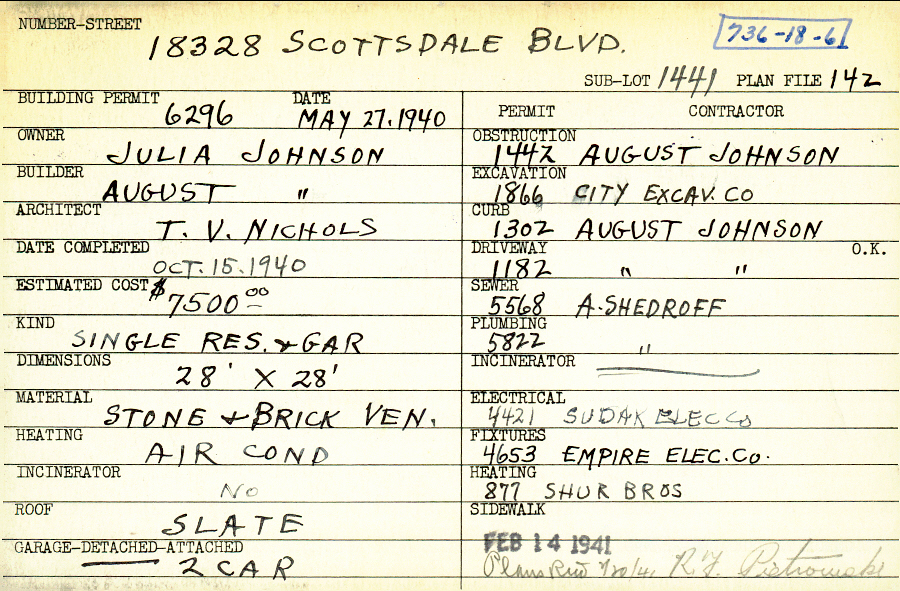 NUMBER-STREET
18328 SCOTTSDALE BLVD.
736-18-61
SUB-LOT 1441 PLAN FILE 142
BUILDING PERMIT 6296
DATE MAY 27.1940
OWNER
JULIA JOHNSON
BUILDER
AUGUST "
ARCHITECT
T. V. NICHOLS
DATE COMPLETED
OCT. 15.1940
ESTIMATED COST $7500 00
KIND
SINGLE RES. & GAR
DIMENSIONS
28' X 28'
MATERIAL
STONE & BRICK VEN.
HEATING
AIR COND
INCINERATOR
NO
ROOF
SLATE
GARAGE-DETACHED-ATTACHED
2 CAR
PERMIT CONTRACTOR
OBSTRUCTION
1442 AUGUST JOHNSON
EXCAVATION
1866 CITY EXCAV. CO
CURB
1302 AUGUST JOHNSON
DRIVEWAY O.K.
1182 " "
SEWER
5568 A. SHEDROFF
PLUMBING
5822 "
INCINERATOR
ELECTRICAL
4421 SUDAK ELEC CO
FIXTURES
4653 EMPIRE ELEC. CO.
HEATING
877 SHUR BROS
SIDEWALK
FEB 14 1941
Plans